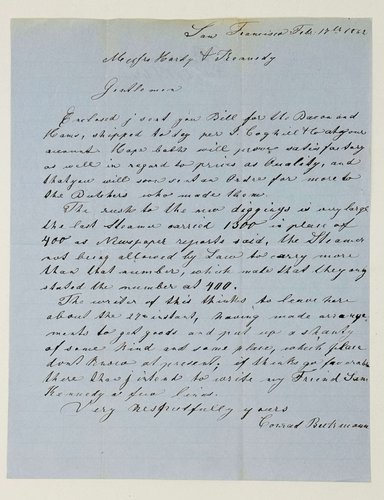 San Francisco Feb 18th 1862
Messrs Hardy & Kennedy
Gentlemen
Enclosed j sent you Bill for the Bacon and
Hams, shipped to day per J. Coghill & Co at your
account. Hope both will prove satisfactory
as well in regard to prices as Quality, and
that you will soon sent an Order for more to
the Butchers who made them.
The rush to the new diggings is very large
the last Steamer carried 1300 in place of
400 as Newspaper reports said, the Steamer
not being allowed by Law to carry more
than that number, which made that they only
stated the number at 400.
The writer of this thinks to leave here
about the 27th instant, having made arrange
ments to get goods and put up a shanty
of some kind and some place, which place
dont know at present, if things go favorable
there than j intend to write my Friend
Kennedy a few lines.
Very respectfully yours
Conrad